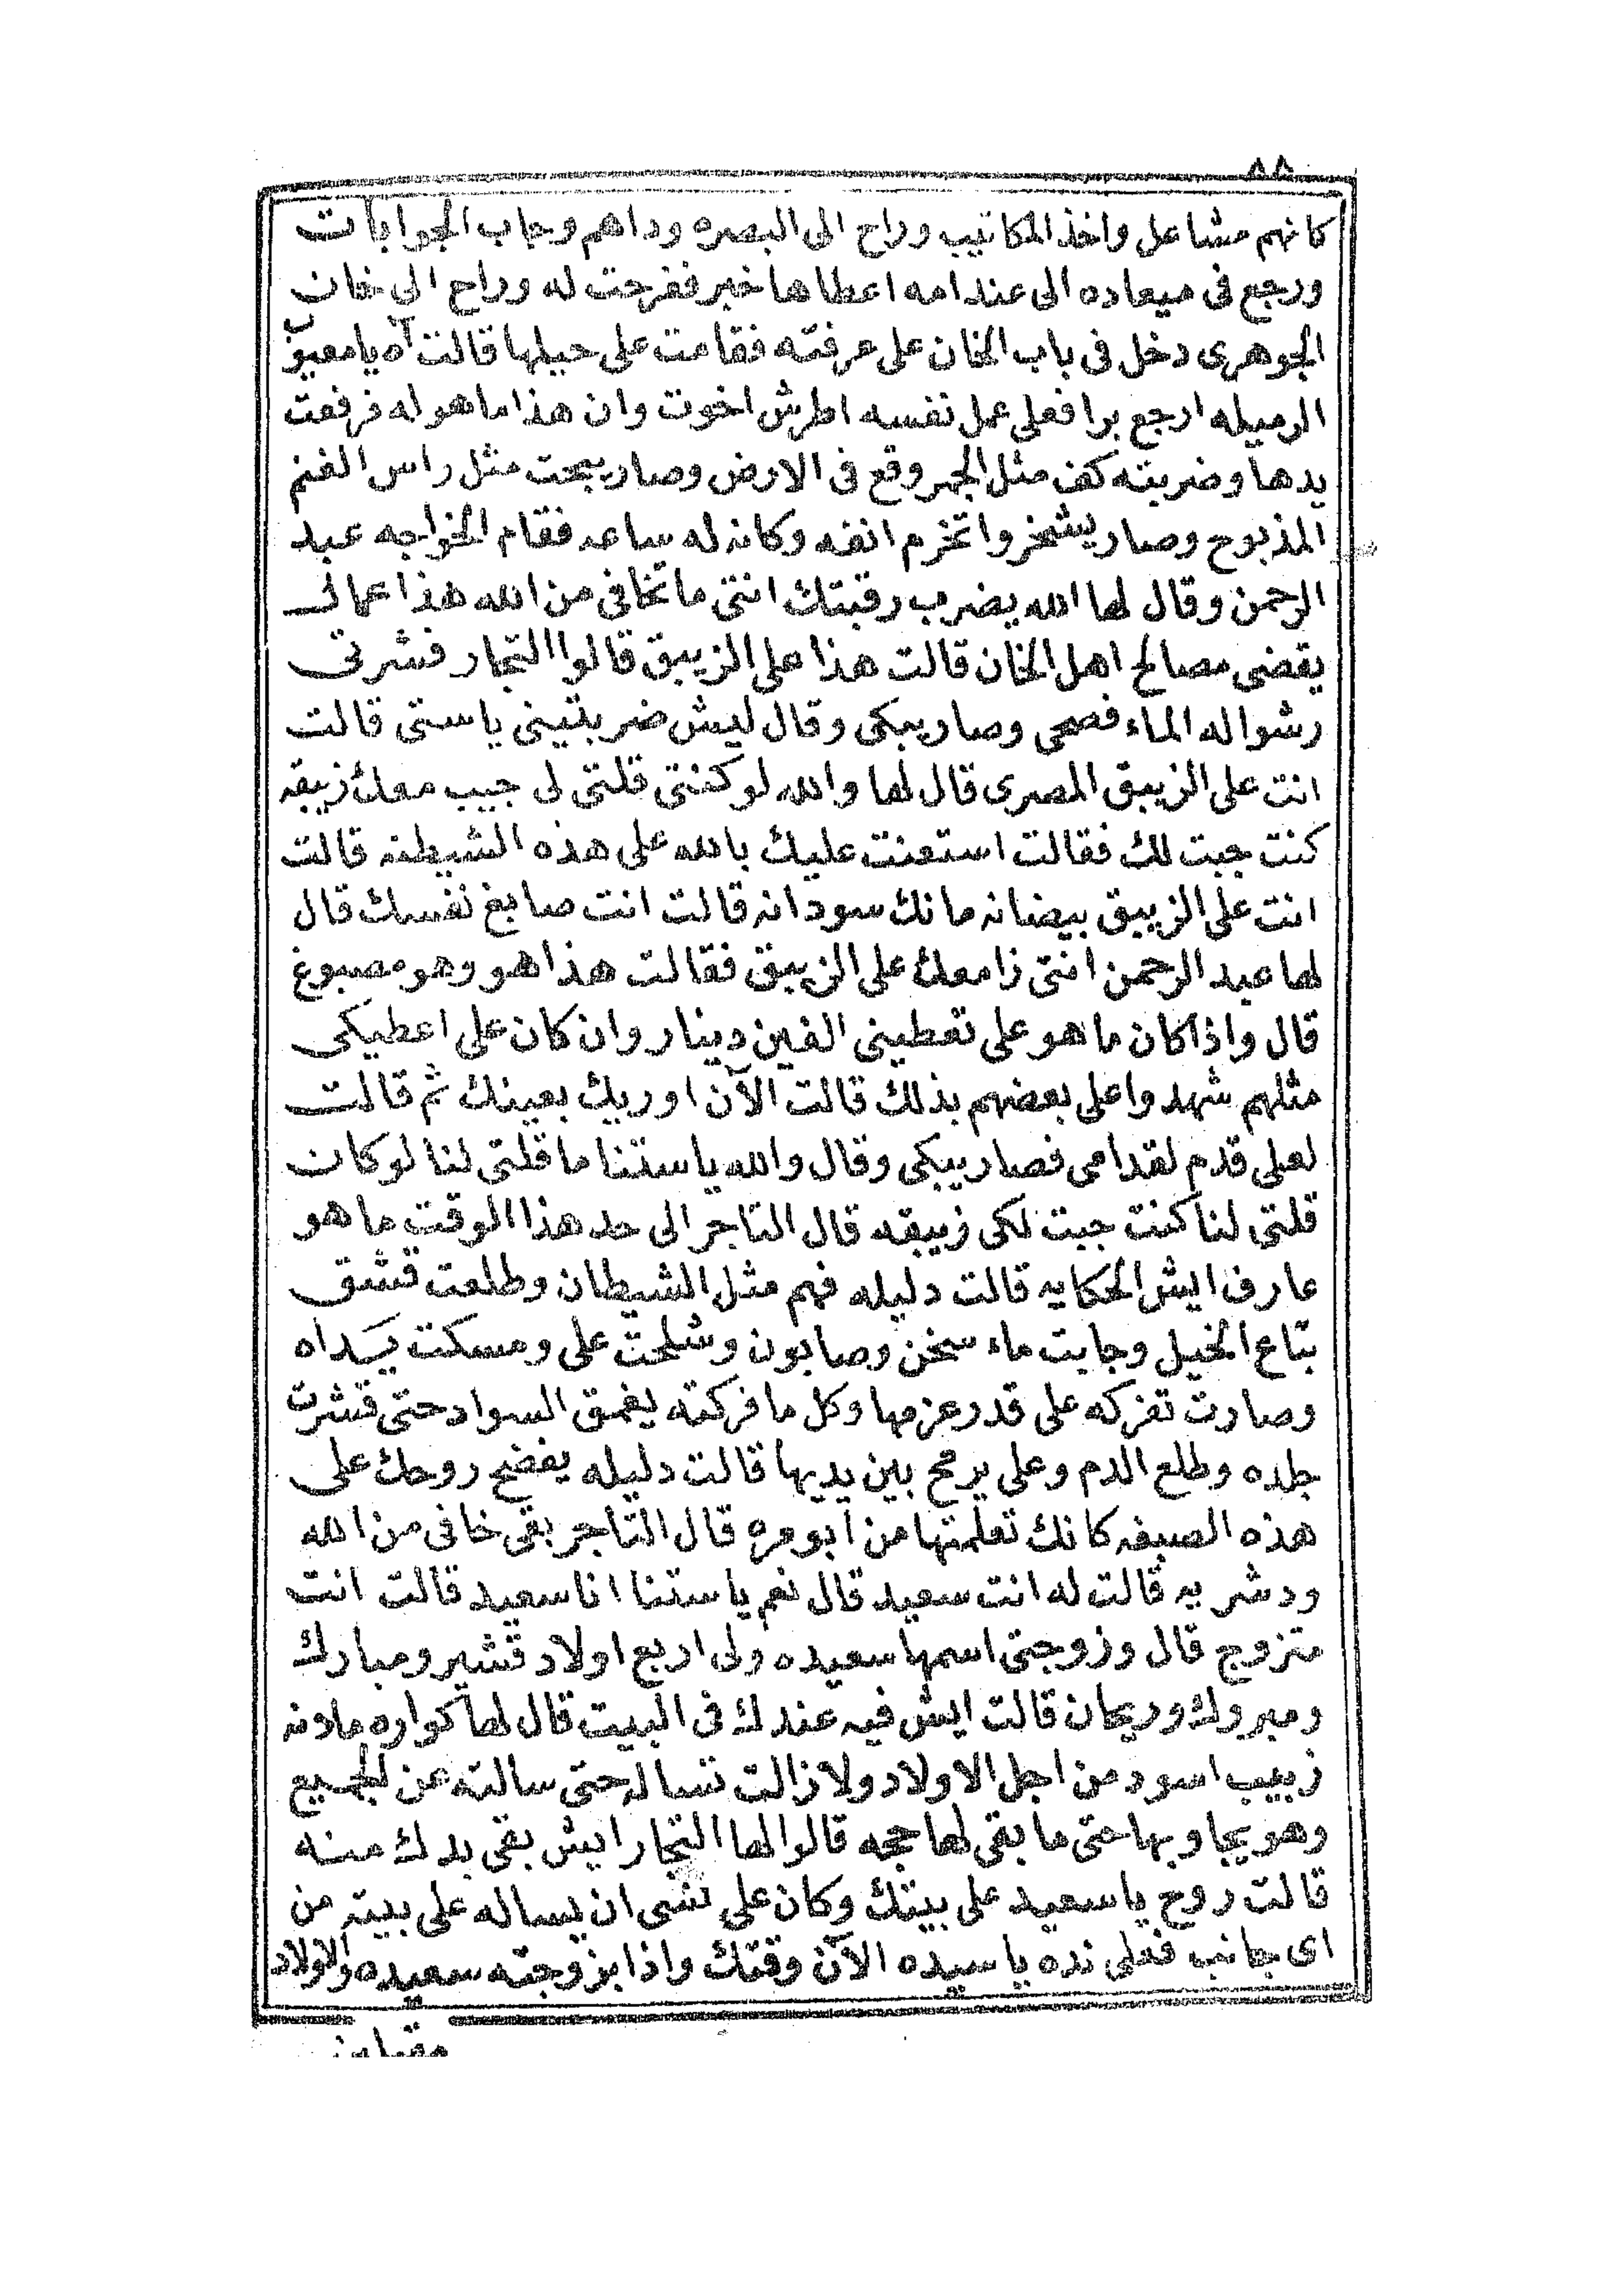 ٨٨
كانهم مشاعل واخذ المكاتيب وراح الى البصره وداهم وجاب الجوابات
ورجع فى ميعاده الى عند امه اعطاها خبر ففرحت له وراح الى خان
الجوهرى دخل فى باب الخان على عرفته فقامت على حيلها قالت آه يا معيوب
الرميله ارجع برا فعلى عمل نفسه اطرش اخوت وان هذا ما هو له فرفعت
يدها وضربته كف مثل الجمر وقع فى الارض وصار يبحت مثل راس الغنم
المذبوح وصار يشخر واتخرم انفه وكانه له ساعه فقام الخواجه عبد
الرحمن وقال لها الله يضرب رقبتك انتى ما تخافى من الله هذا عمال
يقضى مصالح اهل الخان قالت هذا على الزيبق قالوا التجار فشرتى
رشوا له الماء فصحى وصار يبكى وقال ليش ضربتينى يا ستى قالت
انت على الزيبق المصرى قال لها والله لو كنتى قلتى لى جيب معك زيبقه
كنت جبت لك فقالت استعنت عليك بالله على هذه الشيطنه قالت
انت على الزيبق بيضانه مانك سودانه قالت انت صابغ نفسك قال
لها عبد الرحمن انتى زامعك على الزيبق فقالت هذا هو وهو مصبوغ
قال واذا كان ما هو على تعطينى الفين دينار وان كان على اعطيكى
مثلهم شهدوا على بعضهم بذلك قالت الآن اوريك بعينك ثم قالت
لعلى قدم لقدامى فصار يبكى وقال والله يا ستنا ما قلتى لنا لو كان
قلتى لنا كنت جبت لكى زيبقه قال التاجر الى حد هذا الوقت ما هو
عارف ايش الحكايه قالت دليله فهم مثل الشيطان وطلعت قشق
بتاع الخيل وجابت ماء سخن وصابون وشلحت على ومسكت يداه
وصارت تفركه على قدر عزمها وكل ما فركته يغمق السواد حتى قشرت
جلده وطلع الدم وعلى يرمح بين يديها قالت دليله يفضح روحك على
هذه الصبغه كانك تعلمتها من ابو مره قال التاجر بقى خافى من الله
ودشريه قالت له انت سعيد قال نعم يا ستنا انا سعيد قالت انت
متزوج قال وزوجتى اسمها سعيده ولى اربع اولاد قشير ومبارك
ومبروك وريحان قالت ايش فيه عندك فى البيت قال لها كواره ملانه
زبيب اسود من اجل الاولاد ولا زالت تساله حتى سالته عن الجميع
وهو يجاوبها حتى ما بقى لها حجه قالوا لها التجار ايش بقى بدك منه
قالت روح يا سعيد على بيتك وكان على نسى ان يساله على بيته من
اى جانب فعلى نده يا سيده الآن وقتك واذا بزوجته سعيده والاولاد